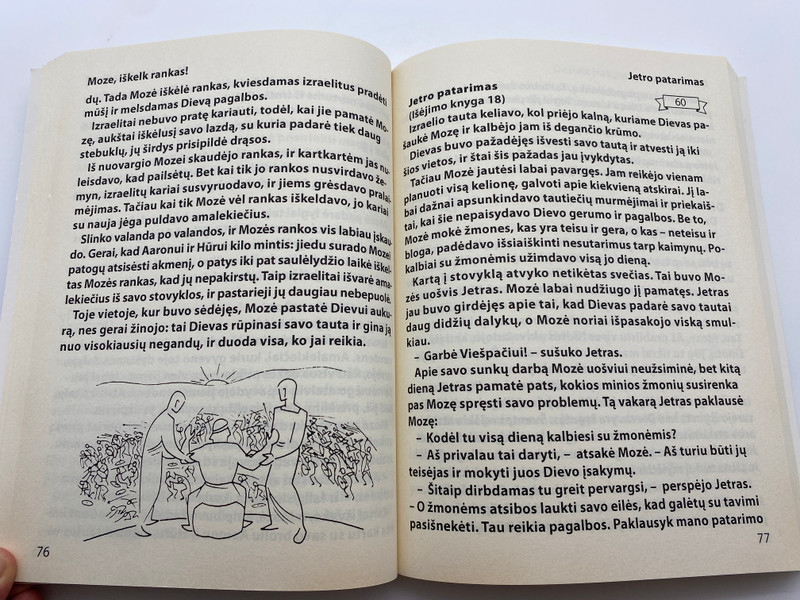 Moze, iškelk rankas!
dų. Tada Mozė iškėlė rankas, kviesdamas izraelitus pradėti
mūšį ir melsdamas Dievą pagalbos.
Izraelitai nebuvo pratę kariauti, todėl, kai jie pamatė Mo-
zę, aukštai iškėlusį savo lazdą, su kuria padarė tiek daug
stebuklų, jų širdys prisipildė drąsos.
Iš nuovargio Mozei skaudėjo rankas, ir kartkartėm jas nu-
leisdavo, kad pailsėtų. Bet kai tik jo rankos nusvirdavo že-
myn, izraelitų kariai susvyruodavo, ir jiems grėsdavo pralai-
mėjimas. Tačiau kai tik Mozė vėl rankas iškeldavo, jo kariai
su nauja jėga puldavo amalekiečius.
Slinko valanda po valandos, ir Mozės rankos vis labiau įskau-
do. Gerai, kad Aaronui ir Hūrui kilo mintis: jiedu surado Mozei
patogų atsisėsti akmenį, o patys iki pat saulėlydžio laikė iškel-
tas Mozės rankas, kad jų nepakirstų. Taip izraelitai išvarė ama-
lekiečius iš savo stovyklos, ir pastarieji jų daugiau nebepuolė.
Toje vietoje, kur buvo sėdėjęs, Mozė pastatė Dievui auku-
rą, nes gerai žinojo: tai Dievas rūpinasi savo tauta ir gina ją
nuo visokiausių negandų, ir duoda visa, ko jai reikia.
76
Jetro patarimas
60
Jetro patarimas
(Išėjimo knyga 18)
Izraelio tauta keliavo, kol priėjo kalną, kuriame Dievas pa-
šaukė Mozę ir kalbėjo jam iš degančio krūmo.
Dievas buvo pažadėjęs išvesti savo tautą ir atvesti ją iki
šios vietos, ir štai šis pažadas jau įvykdytas.
Tačiau Mozė jautėsi labai pavargęs. Jam reikėjo vienam
planuoti visą kelionę, galvoti apie kiekvieną atskirai. Jį la-
bai dažnai apsunkindavo tautiečių murmėjimai ir priekaiš-
tai, kai šie nepaisydavo Dievo gerumo ir pagalbos. Be to,
Mozė mokė žmones, kas yra teisu ir gera, o kas – neteisu ir
bloga, padėdavo išsiaiškinti nesutarimus tarp kaimynų. Po-
kalbiai su žmonėmis užimdavo visą jo dieną.
Kartą į stovyklą atvyko netikėtas svečias. Tai buvo Mo-
zės uošvis Jetras. Mozė labai nudžiugo jį pamatęs. Jetras
jau buvo girdėjęs apie tai, kad Dievas padarė savo tautai
daug didžių dalykų, o Mozė noriai išpasakojo viską smul-
kiau.
– Garbė Viešpačiui! – sušuko Jetras.
Apie savo sunkų darbą Mozė uošviui neužsiminė, bet kitą
dieną Jetras pamatė pats, kokios minios žmonių susirenka
pas Mozę spręsti savo problemų. Tą vakarą Jetras paklausė
Mozę:
– Kodėl tu visą dieną kalbiesi su žmonėmis?
– Aš privalau tai daryti, – atsakė Mozė. – Aš turiu būti jų
teisėjas ir mokyti juos Dievo įsakymų.
– Šitaip dirbdamas tu greit pervargsi, – perspėjo Jetras.
– O žmonėms atsibos laukti savo eilės, kad galėtų su tavimi
pasišnekėti. Tau reikia pagalbos. Paklausyk mano patarimo
77